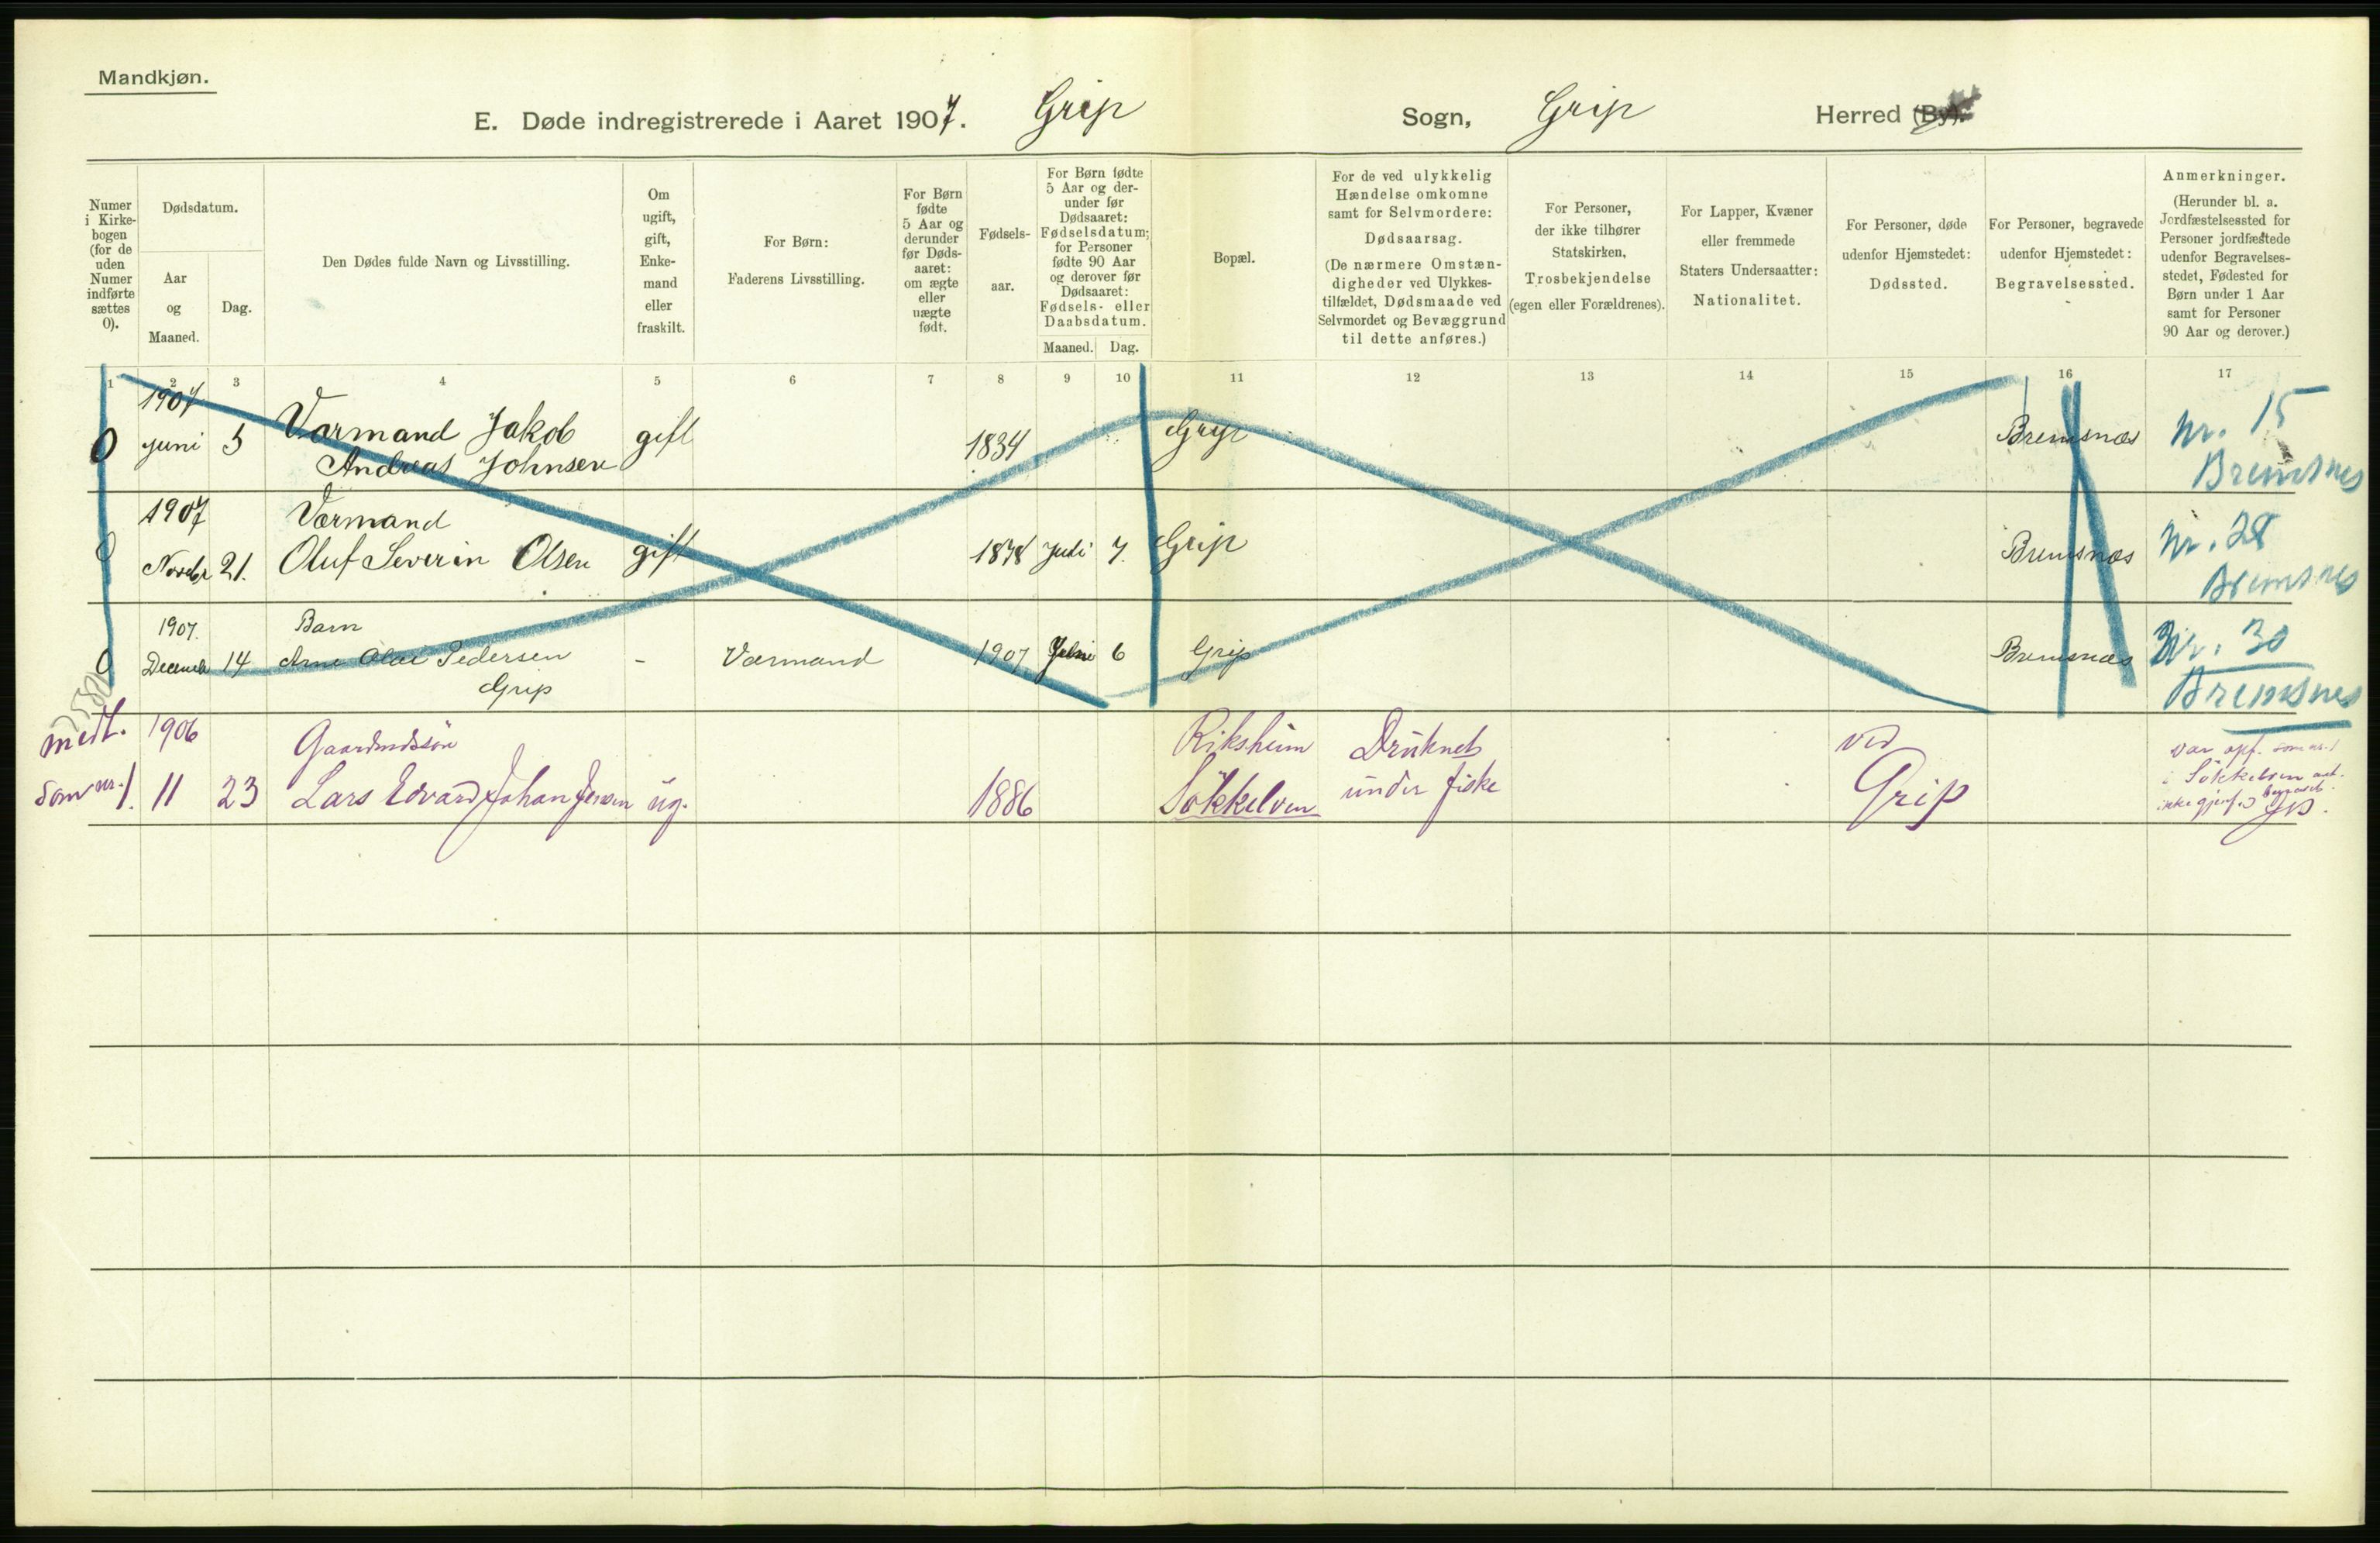 Mandkjøn.
E. Døde indregistrerede i Aaret 1907. Grip Sogn, Grip Herred (By).
Numer
i Kirke-
bogen
(for de
uden
Numer
indførte
sættes
0).
Dødsdatum.
Aar
og
Maaned.
Dag.
Den Dødes fulde Navn og Livsstilling.
Om
ugift,
gift,
Enke-
mand
eller
fraskilt.
For Børn:
Faderens Livsstilling.
For Børn
fødte
5 Aar og
derunder
før Døds-
aaret:
om ægte
eller
uægte
født.
Fødsels-
aar.
For Børn fødte
5 Aar og der-
under før
Dødsaaret:
Fødselsdatum;
for Personer
fødte 90 Aar
og derover før
Dødsaaret:
Fødsels- eller
Daabsdatum.
Maaned. Dag.
Bopæl.
For de ved ulykkelig
Hændelse omkomne
samt for Selvmordere:
Dødsaarsag.
(De nærmere Omstæn-
digheder ved Ulykkes-
tilfældet, Dødsmaade ved
Selvmordet og Bevæggrund
til dette anføres.)
For Personer,
der ikke tilhører
Statskirken,
Trosbekjendelse
(egen eller Forældrenes).
For Lapper, Kvæner
eller fremmede
Staters Undersaatter:
Nationalitet.
For Personer, døde
udenfor Hjemstedet:
Dødssted.
For Personer, begravede
udenfor Hjemstedet:
Begravelsessted.
Anmerkninger.
(Herunder bl. a.
Jordfæstelsessted for
Personer jordfæstede
udenfor Begravelses-
stedet, Fødested for
Børn under 1 Aar
samt for Personer
90 Aar og derover.)
1 2 3 4 5 6 7 8 9 10 11 12 13 14 15 16 17
1907
0 Juni 5 Værmand Jakob gift 1834 Grip Bremsnæs Nr. 15
Andreas Johnsen Bremsnes
1907 Værmand
0 Novebr 21. Oluf Severin Olsen gift 1878 Juli 7. Grip Bremsnæs Nr. 28
Bremsnes
1907. Barn
0 Decemb 14 Arne Olai Pedersen - Værmand 1907 6 Grip Bremsnæs Nr. 30
Grip Bremsnes
medt. 1906 Gaardmdssøn Riksheim Druknet ved var opf. som nr. 1
som nr. 1. 11 23 Lars Edvard Johan Jensen ug. 1886 Søkkelven under fiske Grip i Søkkelven
ikke